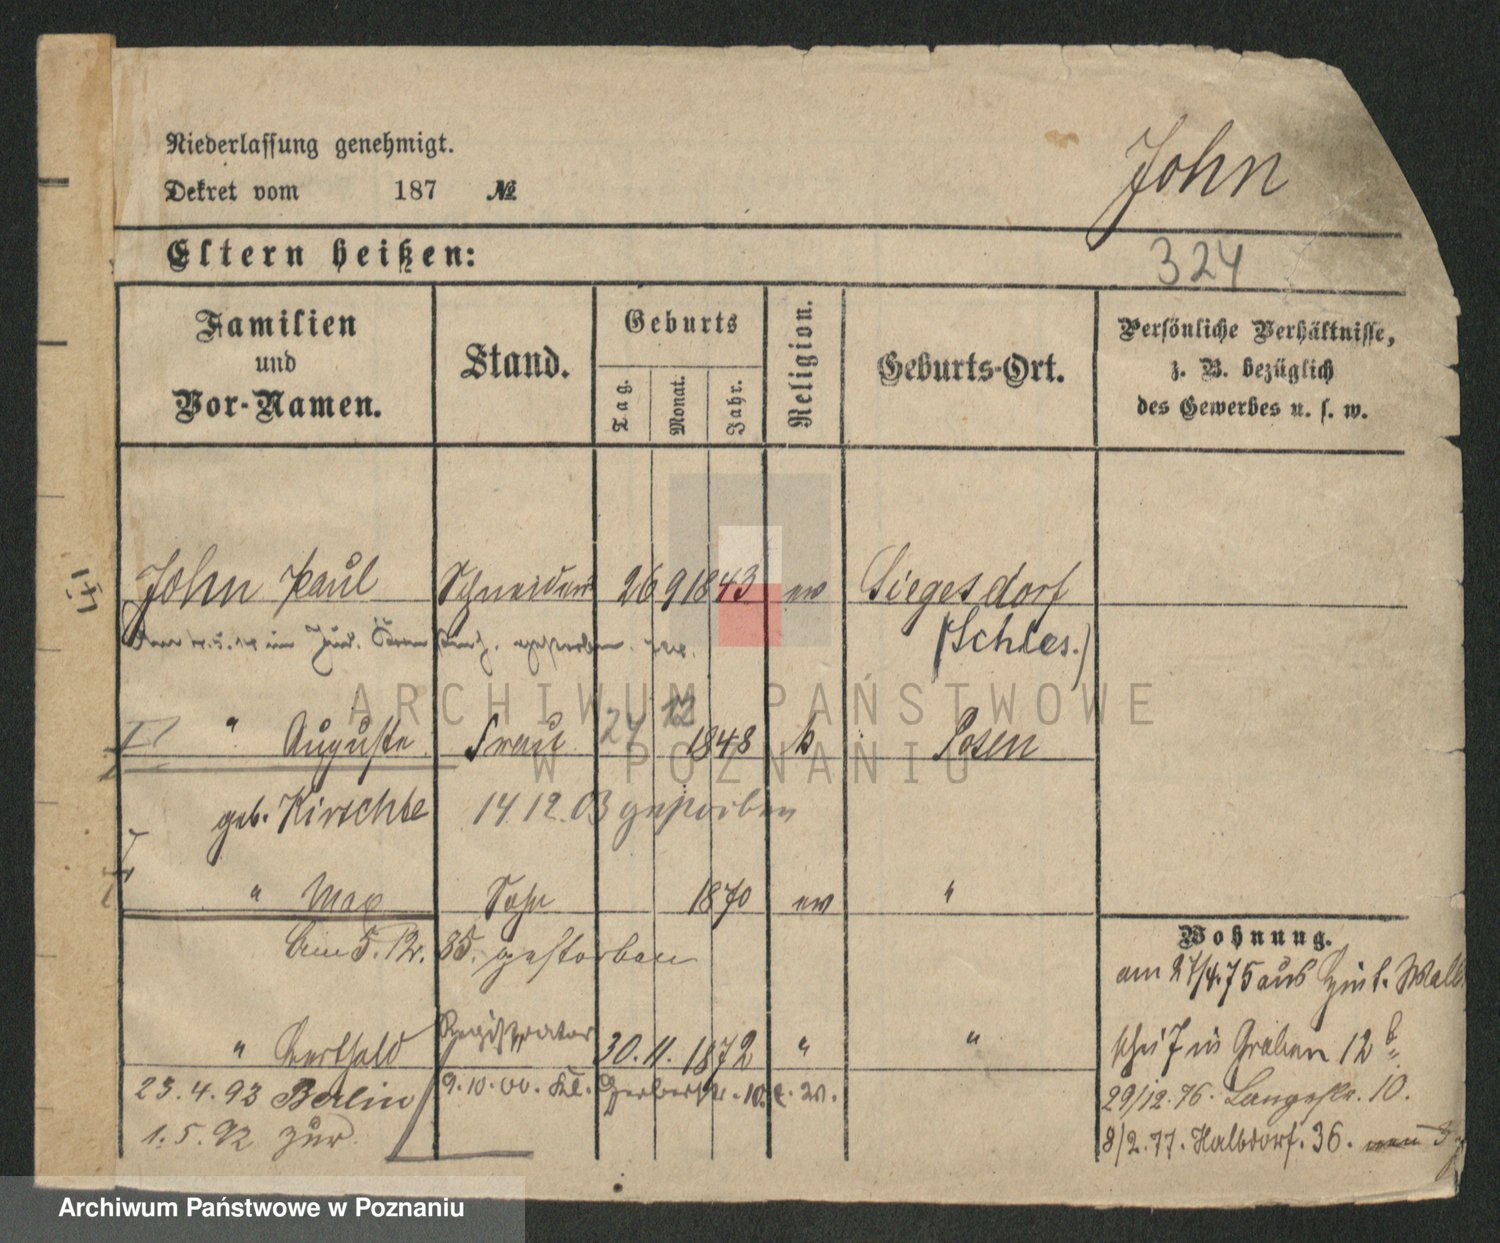 Niederlassung genehmigt.
John
Dekret vom 187 №
Eltern heißen:
324
Familien
und
Vor-Namen.
Stand.
Geburts
Tag.
Monat.
Jahr.
Religion.
Geburts-Ort.
Persönliche Verhältnisse,
z. B. bezüglich
des Gewerbes u. s. w.
141
John Paul Schneider 26 9 1843 ev Siegesdorf
(Schles.)
gestorben
ARCHIWUM PAŃSTWOWE
W POZNANIU
" Auguste Frau 24 12 1848 k Posen
geb. Kirschke 14.12.03 gestorben
" Max Sohn 1870 ev "
Am 5.12.85. gestorben
Wohnung.
am 27/4.75 aus Hint. Wall
" Berthold Registrator 30.11.1872 " "
in Graben 12 b
23.4.93 Berlin 9.10.00. Kl. Gerberstr. 10.
29/12.76. Langestr. 10.
1.5.92 zur
8/2.77. Halbdorf. 36.
Archiwum Państwowe w Poznaniu